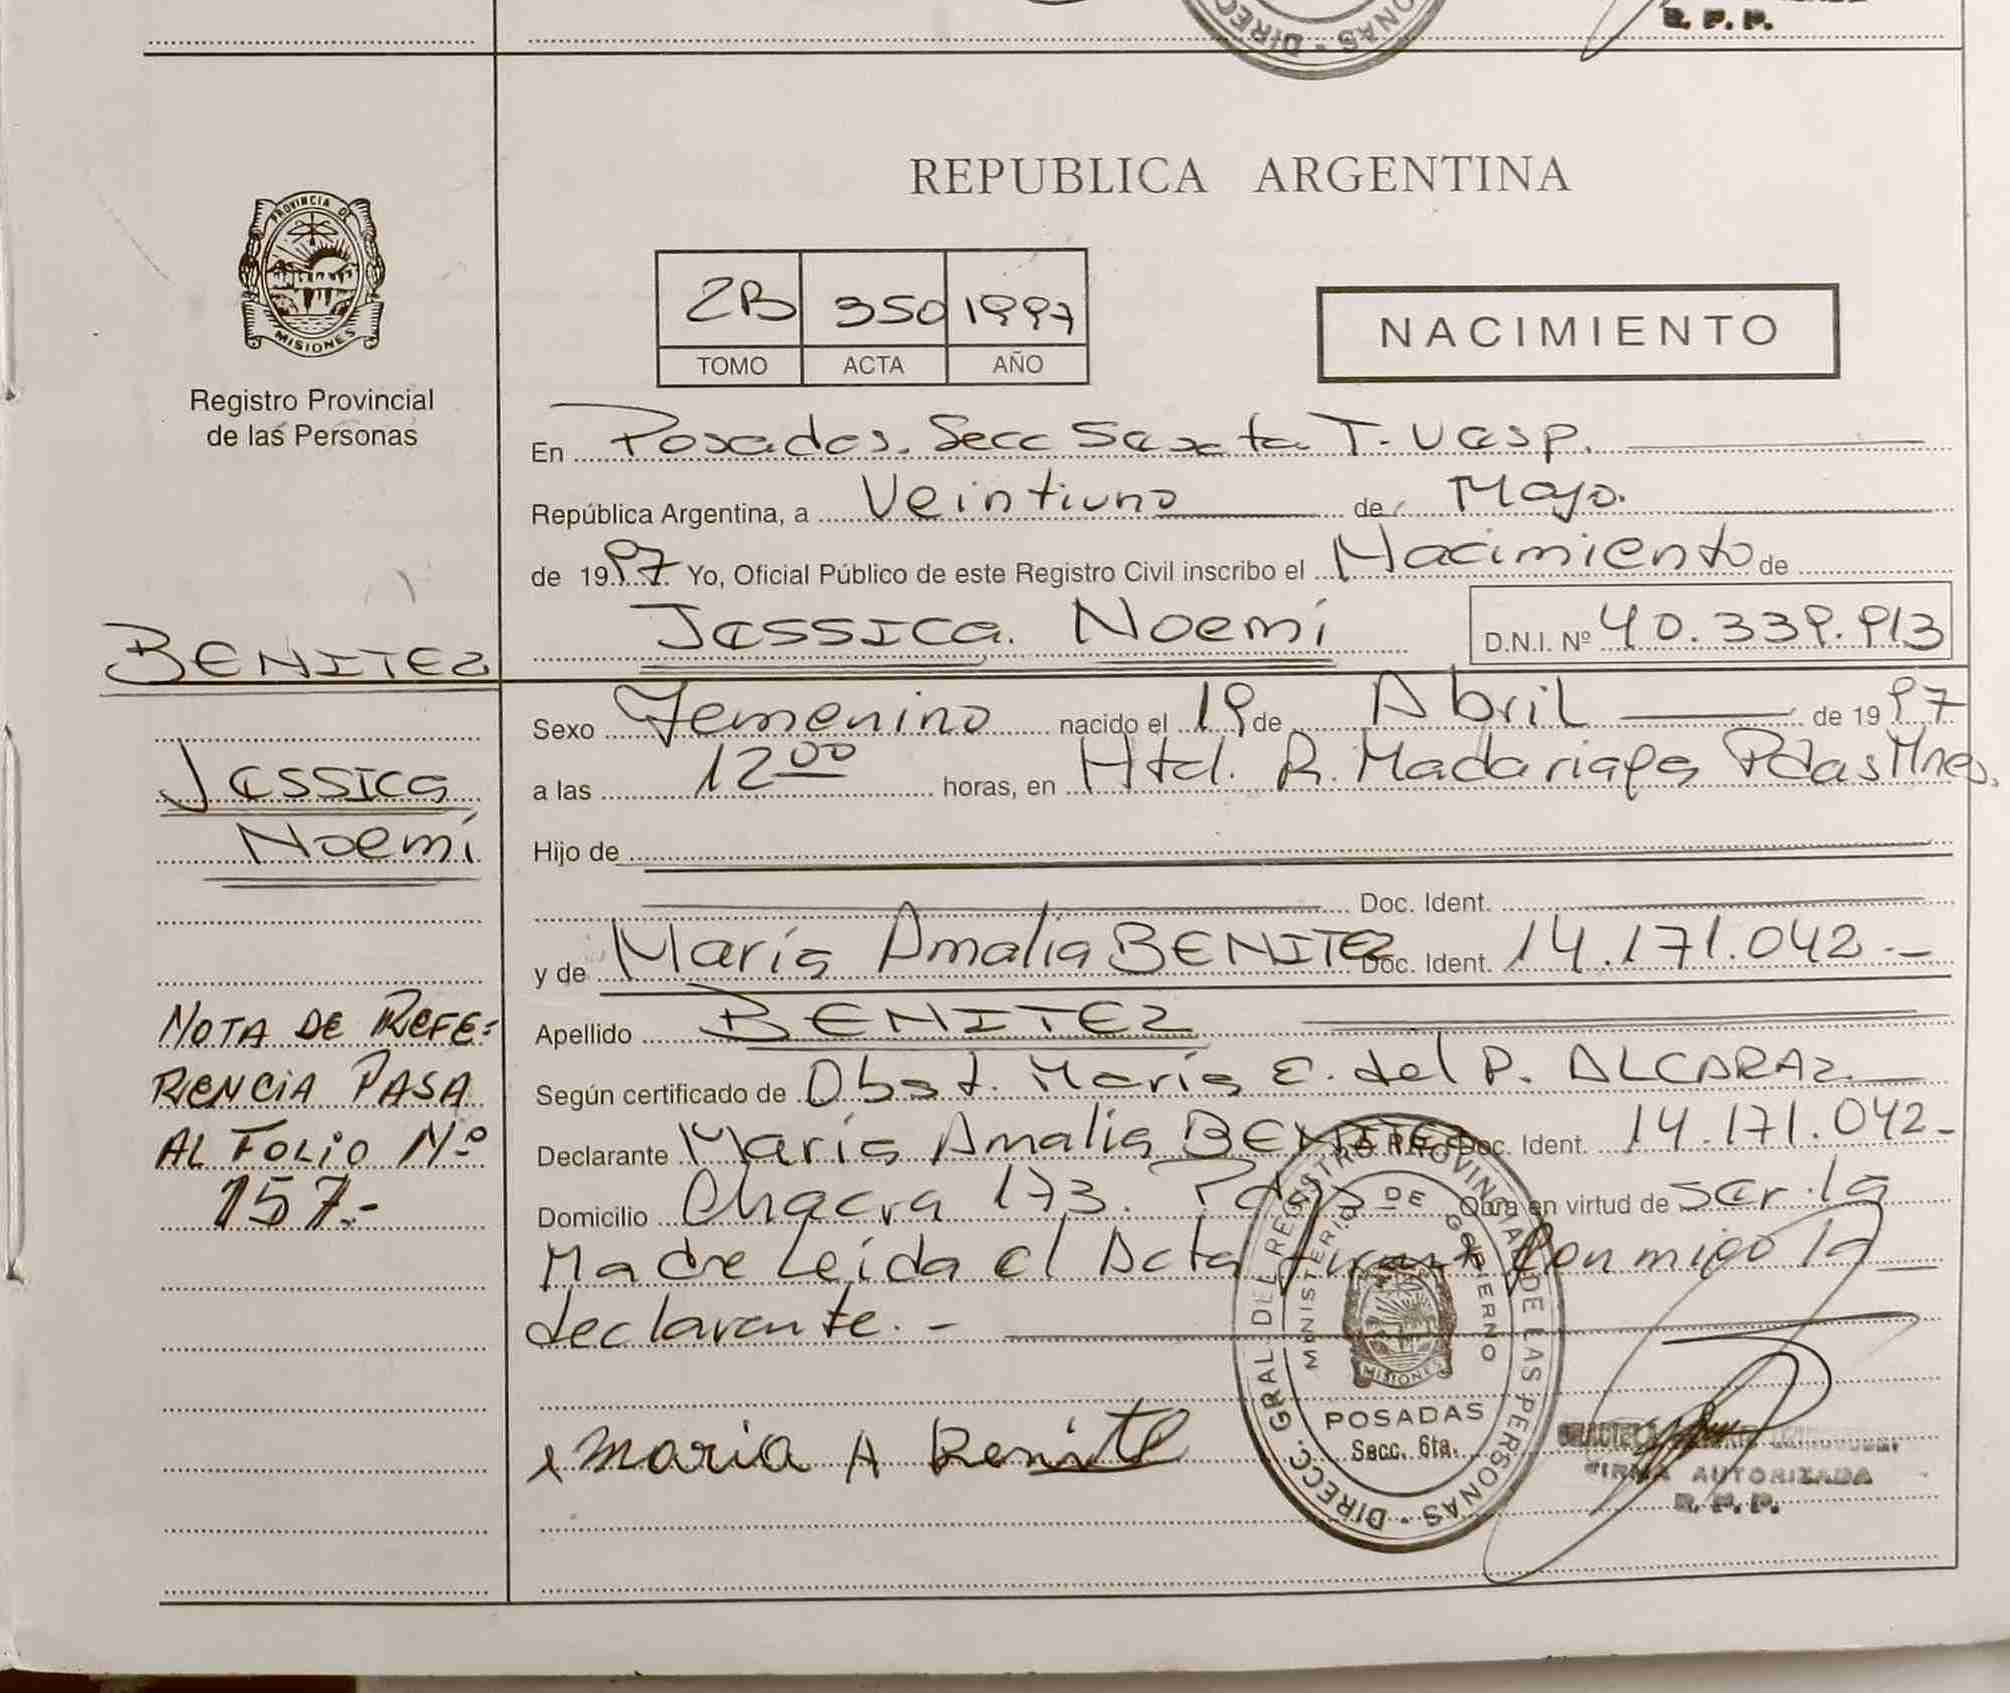 DIRECC
ONAS - DIREC
R. P. P.
PROVINCIA DE
MISIONES
Registro Provincial
de las Personas
REPUBLICA ARGENTINA
2B 350 1997
TOMO ACTA AÑO
NACIMIENTO
En Posadas. Secc Sexta T. Uasp.
República Argentina, a Veintiuno de Mayo.
de 1997. Yo, Oficial Público de este Registro Civil inscribo el Nacimiento de
Jessica Noemí D.N.I. Nº 40.339.913
BENITEZ
Jessica
Noemí
NOTA DE REFE-
RENCIA PASA
AL FOLIO Nº
157.-
Sexo Femenino nacido el 19 de Abril de 1997
a las 12 00 horas, en Htal. R. Madariaga Pdas Mnes.
Hijo de
Doc. Ident.
y de María Amalia BENITEZ Doc. Ident. 14.171.042.-
Apellido BENITEZ
Según certificado de Obst. María E. del P. ALCARAZ
Declarante María Amalia BENITEZ Doc. Ident. 14.171.042-
Domicilio Chacra 173. Pdas Obra en virtud de ser la
Madre Leida el Acta firma conmigo la
declarante.-
Maria A Benite
DIRECC. GRAL DEL REGISTRO PROVINCIAL DE LAS PERSONAS -
MINISTERIO DE GOBIERNO
MISIONES
POSADAS
Secc. 6ta.
FIRMA AUTORIZADA
R. P. P.